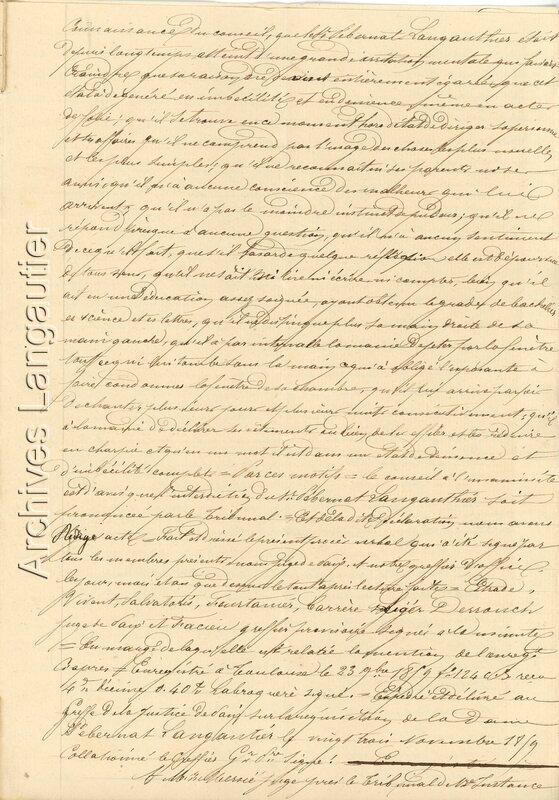 connaissance du conseil, que le Sr Debernat Langauthier était
depuis longtemps atteint d'une grande irritation mentale qui faisait
craindre que sa raison ne fut entièrement égarée que cet
état a dégénéré en imbécilité et en démence même en acte
de folie; qu'il se trouve en ce moment hors d'état de diriger sa personne
et ses affaires qu'il ne comprend pas l'usage des choses les plus usuelles
et les plus simples; qu'il ne reconnait ni ses parents ni ses
amis; qu'il n'a aucune conscience des malheurs qui lui
arrivent, qu'il n'a pas le moindre instinct de pudeur; qu'il ne
répond presque à aucune question, qu'il n'a aucun sentiment
de ce qu'il fait, que s'il hasarde quelque réflexion elle est dépourvue
de tous sens, qu'il ne sait ni lire ni écrire ni compter, bien qu'il
ait eu une éducation assez soignée, ayant obtenu le grade de bachelier
es science et es lettres, qu'il ne distingue plus sa main droite de sa
main gauche, qu'il a par intervalle la manie de jeter par la fenêtre
tout ce qui lui tombe dans la main ce qui a obligé l'exposante à
faire condamner la fenêtre de sa chambre, qu'il lui arrive parfois
de chanter plusieurs jours et plusieurs nuits consécutivement, qu'il
a la manie de déchirer ses vêtements ou bien de les effiler et les réduire
en charpie et qu'en un mot il est dans un état de démence et
d'imbécilité complète = Par ces motifs = le conseil à l'unanimité
est d'avis que l'interdiction du Sr Debernat Langauthier soit
prononcée par le Tribunal = Et de la dite déclaration nous avons
rédigé acte = Fait et dressé le présent procès verbal qui a été signé par
tous les membres présents nous juge de paix et notre greffier d'office
les jour, mois et an que dessus le tout après lecture faite =
Vivent, Salvatoris, Fontanier, Carrère Léger
juge de paix et greffier provisoire signés à la minute
= En marge de laquelle est relatée la mention de l'enregt
= Enregistré à Toulouse le 23 9bre 1859 fo 124 reçu
4 f. décime 0.40 c. signé = Expédié et délivré au
Greffe de la Justice de Paix sur la réquisition de la Dame
Debernat Langauthier le vingt trois Novembre 1859
Collationné le Greffier signé:
A Mr juge près le Tribunal de 1re Instance
Archives Langautier